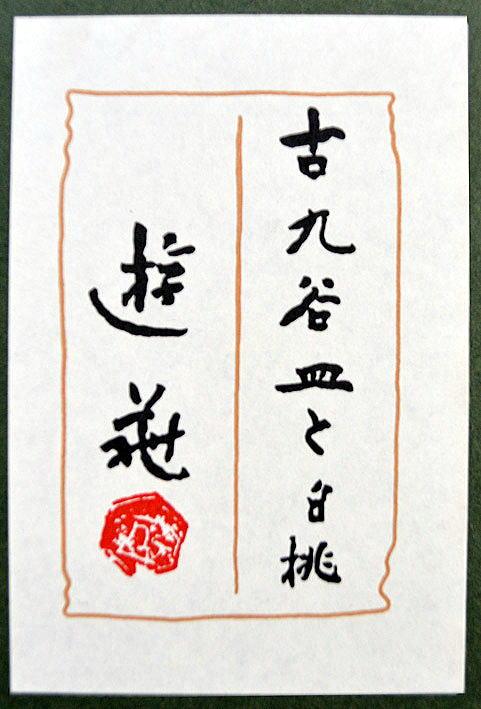 古九谷皿と白桃
遊亀